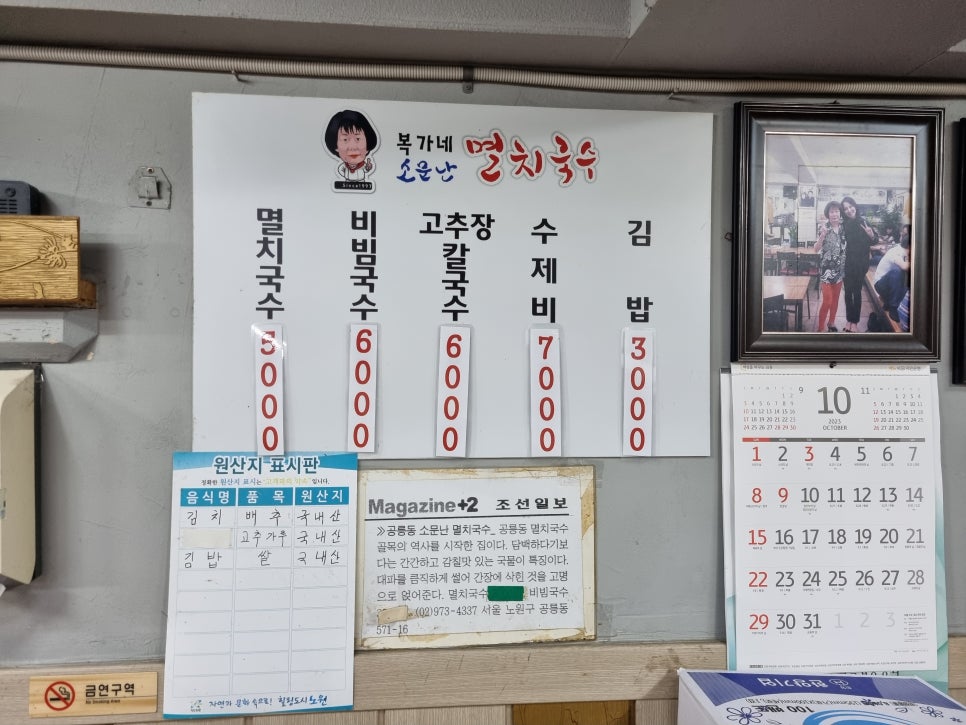 Since1997
복가네
소문난
멸치국수
멸치국수
5000
비빔국수
6000
고추장
칼국수
6000
수제비
7000
김밥
3000
원산지 표시판
정확한 원산지 표시는 "고객과의 약속"입니다.
음식명 품목 원산지
김치 배추 국내산
고추가루 국내산
김밥 쌀 국내산
자연과 문화 속으로! 힐링도시노원
Magazine+2 조선일보
≫공릉동 소문난 멸치국수_ 공릉동 멸치국수
골목의 역사를 시작한 집이다. 담백하다기보
다는 간간하고 감칠맛 있는 국물이 특징이다.
대파를 큼직하게 썰어 간장에 삭힌 것을 고명
으로 얹어준다. 멸치국수 비빔국수
(02)973-4337 서울 노원구 공릉동
571-16
금연구역
No Smoking Area
9 10 11
2023
OCTOBER
1 2 3 4 5 6 7
8 9 10 11 12 13 14
15 16 17 18 19 20 21
22 23 24 25 26 27 28
29 30 31 1 2 3 4
한양기업
100 밴드